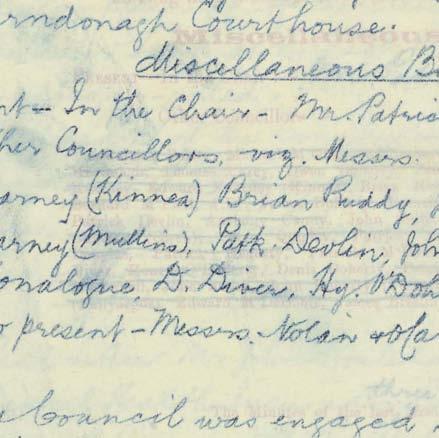 rndonagh Courthouse.
Miscellaneous B
nt - In the Chair - Mr. Patric
her Councillors, viz. Messrs.
arney (Kinnea) Brian Ruddy, J
arney (Mullins), Patk. Devlin, Joh
onalogue, D. Diver, Hy. O'Doh
o present - Messrs. Nolan & McCa
Council was engaged